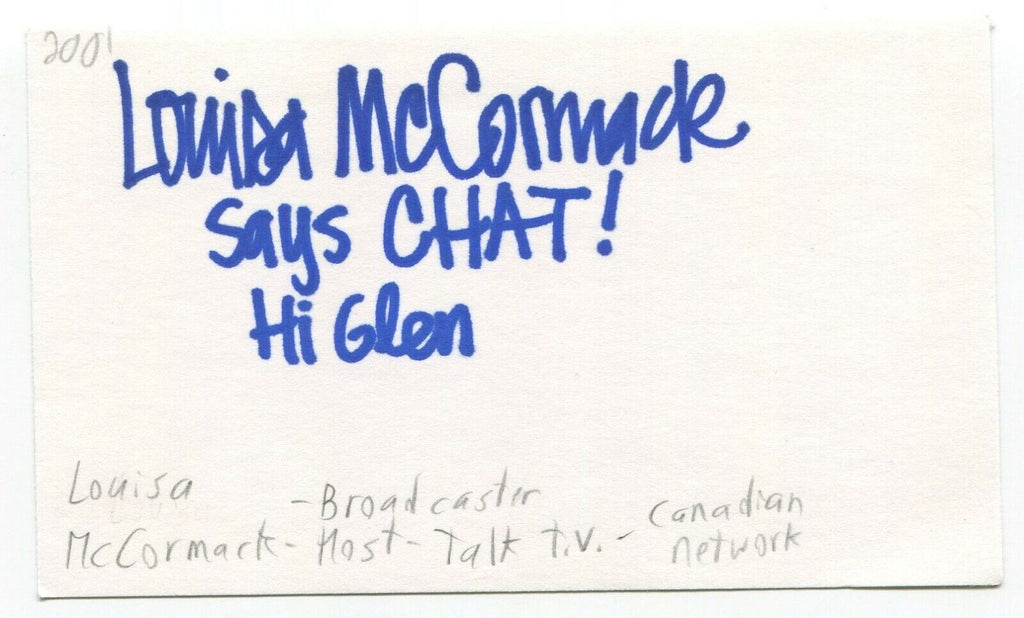 2001
Louisa McCormack
says CHAT!
Hi Glen
Louisa - Broadcaster
McCormack - Host - Talk T.V. - Canadian network